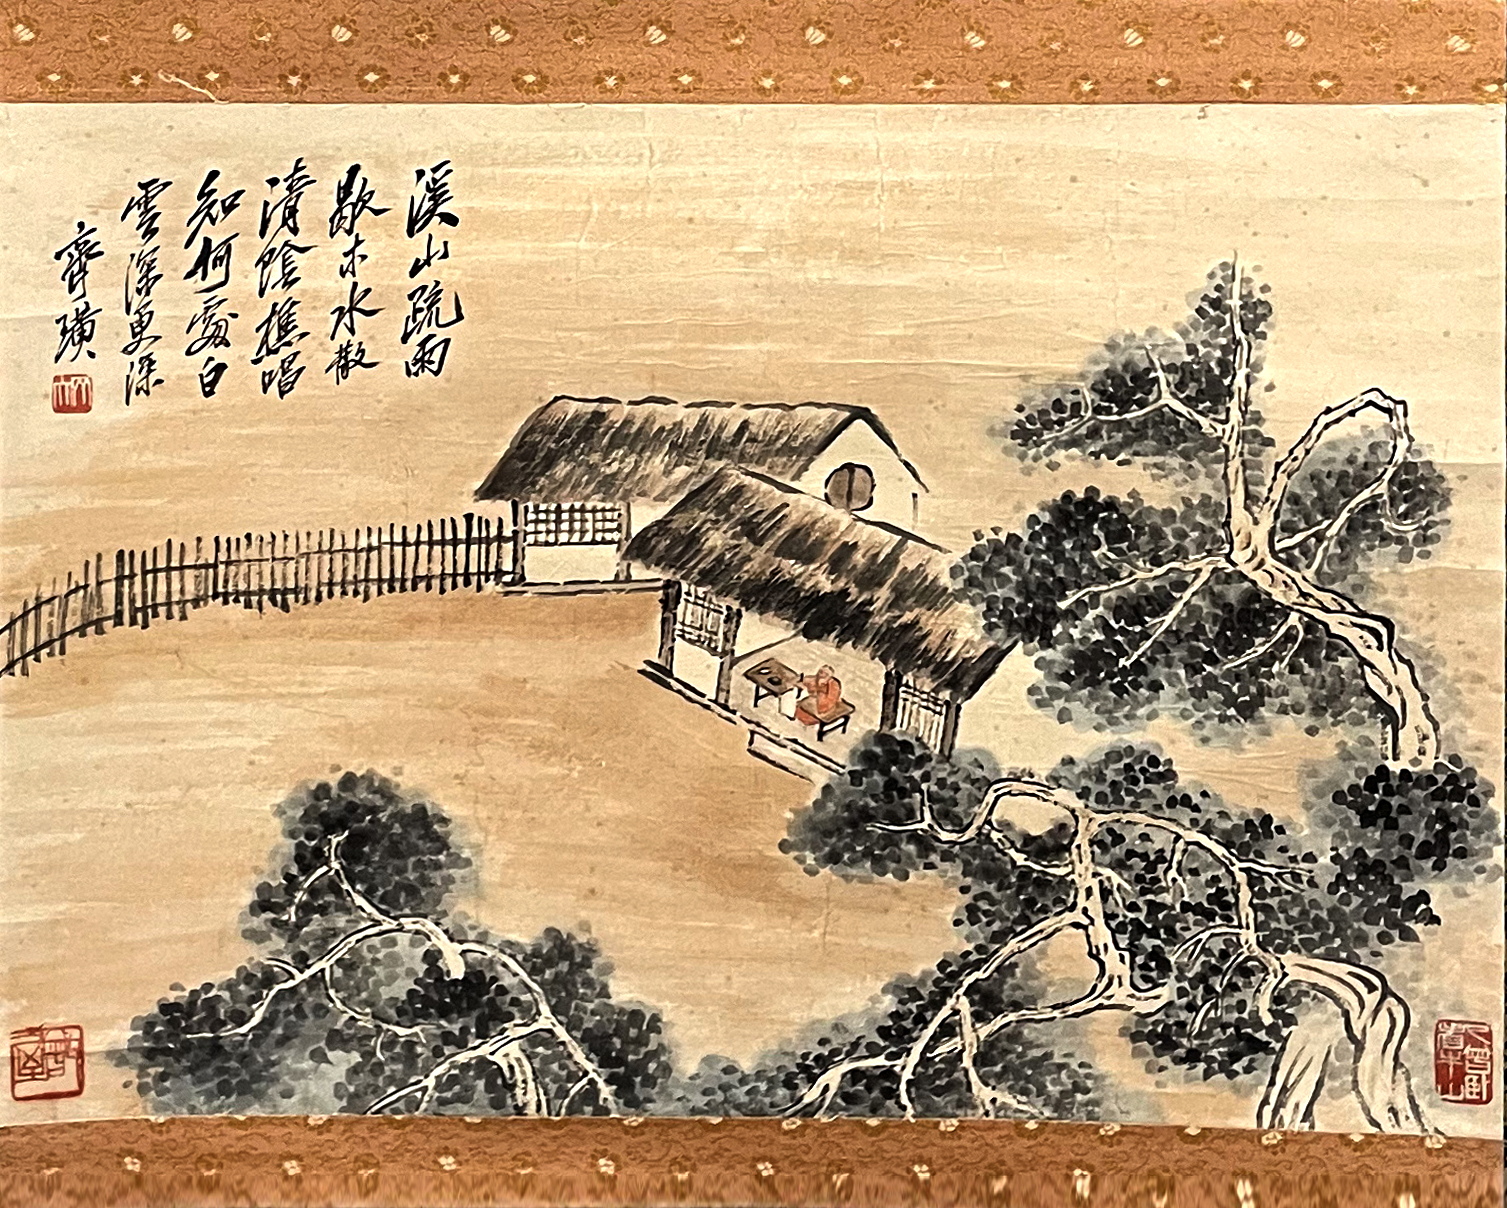 溪山疏雨
歇木水散
清陰樵唱
知何處白
雲深更深
齊璜